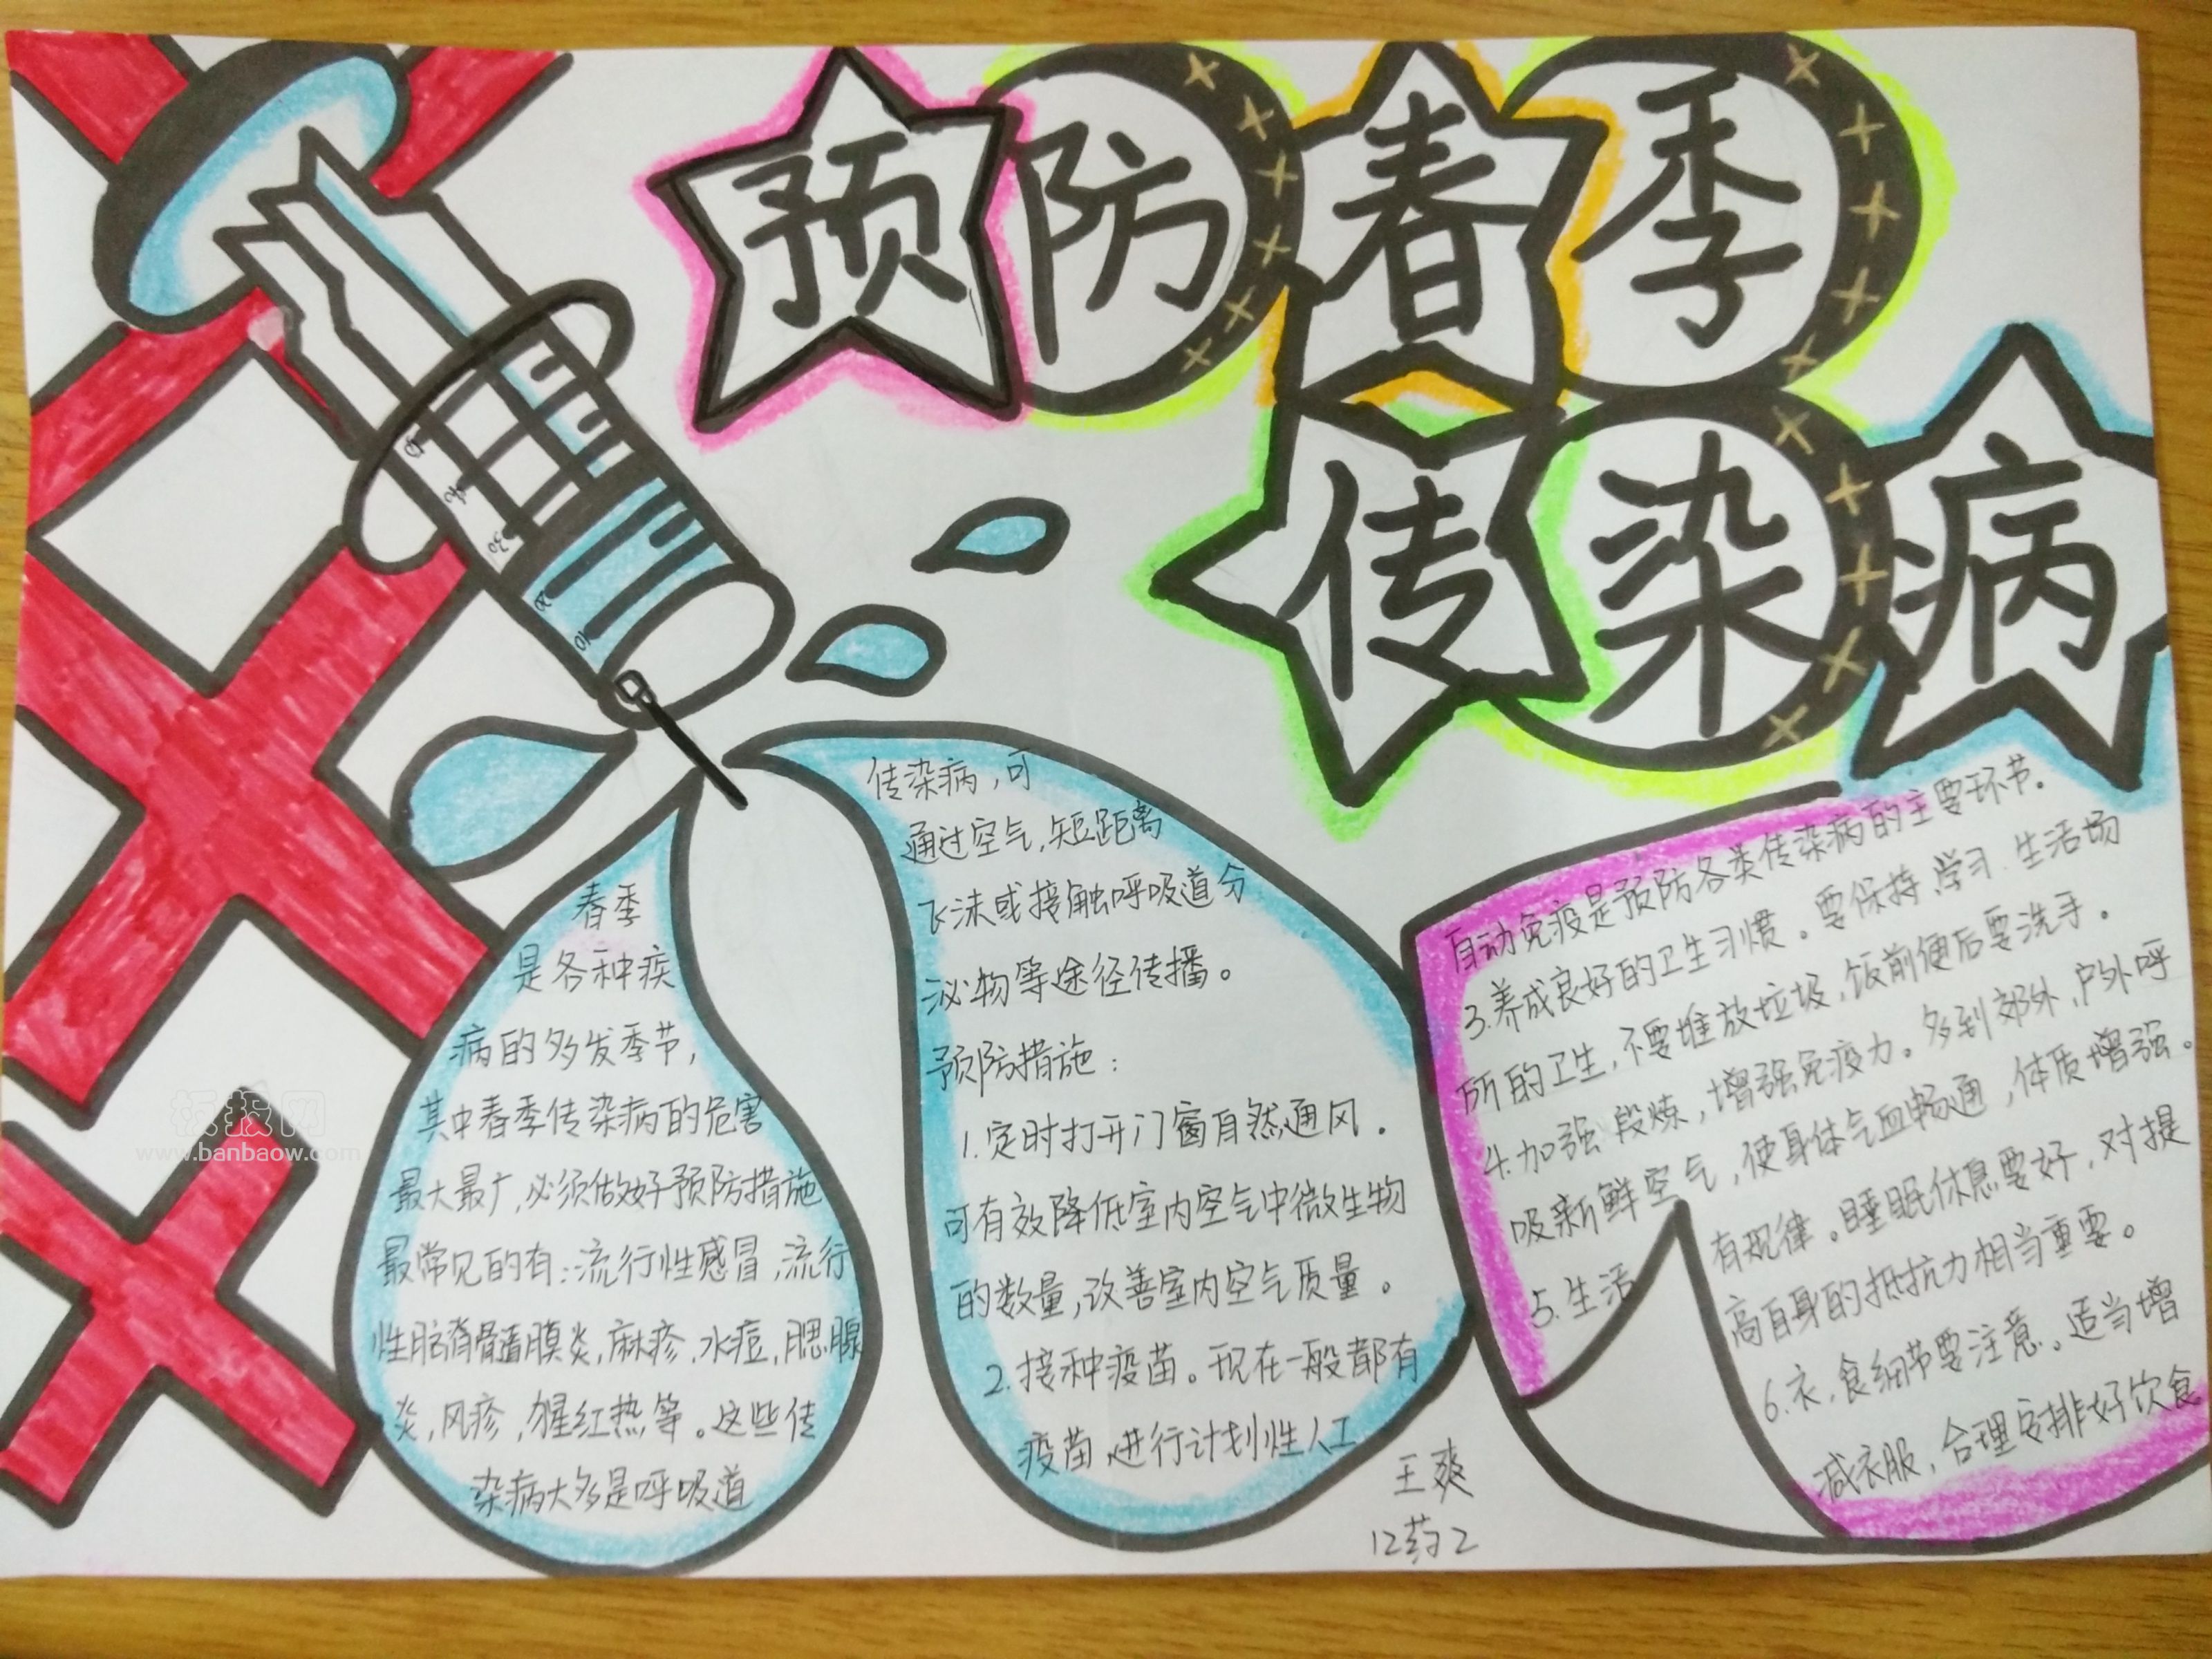 预防春季
传染病
50
40
30
20
10
春季
是各种疾
病的多发季节,
其中春季传染病的危害
最大最广,必须做好预防措施
最常见的有:流行性感冒,流行
性脑脊髓膜炎,麻疹,水痘,腮腺
炎,风疹,猩红热等。这些传
染病大多是呼吸道
传染病,可
通过空气,短距离
飞沫或接触呼吸道分
泌物等途径传播。
预防措施:
1.定时打开门窗自然通风.
可有效降低室内空气中微生物
的数量,改善室内空气质量.
2.接种疫苗。现在一般都有
疫苗,进行计划性人工
自动免疫是预防各类传染病的主要环节.
3.养成良好的卫生习惯。要保持学习.生活场
所的卫生,不要堆放垃圾,饭前便后要洗手.
4.加强段炼,增强免疫力。多到郊外,户外呼
吸新鲜空气,使身体气血畅通,体质增强.
5.生活有规律。睡眠休息要好,对提
高自身的抵抗力相当重要。
6.衣,食细节要注意。适当增
减衣服,合理安排好饮食
王爽
12药2
板报网
www.banbaow.com